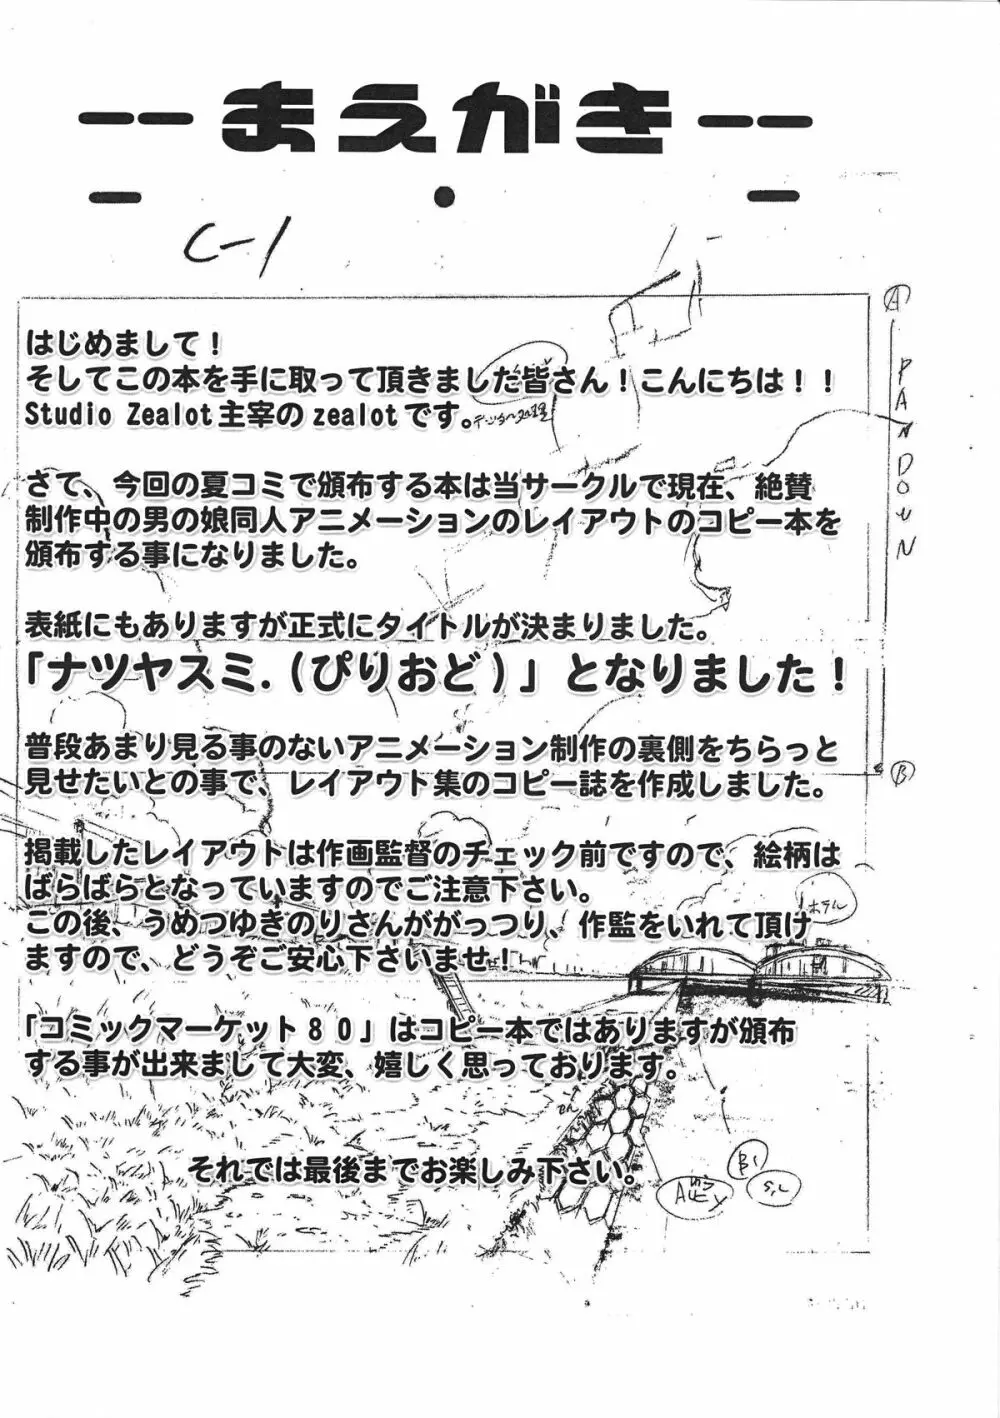 --まえがき--
C-1
はじめまして！
そしてこの本を手に取って頂きました皆さん！こんにちは！！
Studio Zealot主宰のzealotです。
さて、今回の夏コミで頒布する本は当サークルで現在、絶賛
制作中の男の娘同人アニメーションのレイアウトのコピー本を
頒布する事になりました。
表紙にもありますが正式にタイトルが決まりました。
「ナツヤスミ.(ぴりおど)」となりました！
普段あまり見る事のないアニメーション制作の裏側をちらっと
見せたいとの事で、レイアウト集のコピー誌を作成しました。
掲載したレイアウトは作画監督のチェック前ですので、絵柄は
ばらばらとなっていますのでご注意下さい。
この後、うめつゆきのりさんががっつり、作監をいれて頂け
ますので、どうぞご安心下さいませ！
「コミックマーケット８０」はコピー本ではありますが頒布
する事が出来まして大変、嬉しく思っております。
それでは最後までお楽しみ下さい。
A
PAN DOWN
B
ホテル
B1
S,L